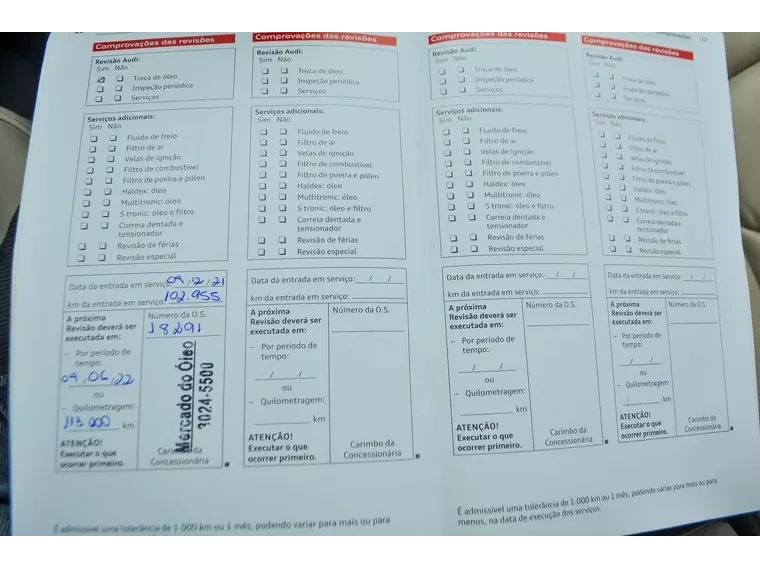 Comprovações das revisões
Revisão Audi:
Sim Não
Troca de óleo
Inspeção periódica
Serviços
Serviços adicionais:
Sim Não
Fluido de freio
Filtro de ar
Velas de ignição
Filtro de combustível
Filtro de poeira e pólen
Haldex: óleo
Multitronic: óleo
S tronic: óleo e filtro
Correia dentada e
tensionador
Revisão de férias
Revisão especial
Data da entrada em serviço: 09/12/21
km da entrada em serviço: 102.955
A próxima
Revisão deverá ser
executada em:
– Por período de
tempo:
09/06/22
ou
– Quilometragem:
113 000 km
ATENÇÃO!
Executar o que
ocorrer primeiro.
Número da O.S.
18291
Mercado do Óleo
3024-5500
Carimbo da
Concessionária
É admissível uma tolerância de 1.000 km ou 1 mês, podendo variar para mais ou para
Comprovações das revisões
Revisão Audi:
Sim Não
Troca de óleo
Inspeção periódica
Serviços
Serviços adicionais:
Sim Não
Fluido de freio
Filtro de ar
Velas de ignição
Filtro de combustível
Filtro de poeira e pólen
Haldex: óleo
Multitronic: óleo
S tronic: óleo e filtro
Correia dentada e
tensionador
Revisão de férias
Revisão especial
Data da entrada em serviço: / /
km da entrada em serviço:
A próxima
Revisão deverá ser
executada em:
– Por período de
tempo:
/ /
ou
– Quilometragem:
km
ATENÇÃO!
Executar o que
ocorrer primeiro.
Número da O.S.
Carimbo da
Concessionária
Comprovações das revisões
Revisão Audi:
Sim Não
Troca de óleo
Inspeção periódica
Serviços
Serviços adicionais:
Sim Não
Fluido de freio
Filtro de ar
Velas de ignição
Filtro de combustível
Filtro de poeira e pólen
Haldex: óleo
Multitronic: óleo
S tronic: óleo e filtro
Correia dentada e
tensionador
Revisão de férias
Revisão especial
Data da entrada em serviço: / /
km da entrada em serviço:
A próxima
Revisão deverá ser
executada em:
– Por período de
tempo:
/ /
ou
– Quilometragem:
km
ATENÇÃO!
Executar o que
ocorrer primeiro.
Número da O.S.
Carimbo da
Concessionária
É admissível uma tolerância de 1.000 km ou 1 mês, podendo variar para mais ou para
menos, na data de execução dos serviços.
Comprovações das revisões
Revisão Audi:
Sim Não
Troca de óleo
Inspeção periódica
Serviços
Serviços adicionais:
Sim Não
Fluido de freio
Filtro de ar
Velas de ignição
Filtro de combustível
Filtro de poeira e pólen
Haldex: óleo
Multitronic: óleo
S tronic: óleo e filtro
Correia dentada e
tensionador
Revisão de férias
Revisão especial
Data da entrada em serviço: / /
km da entrada em serviço:
A próxima
Revisão deverá ser
executada em:
– Por período de
tempo:
/ /
ou
– Quilometragem:
km
ATENÇÃO!
Executar o que
ocorrer primeiro.
Número da O.S.
Carimbo da
Concessionária